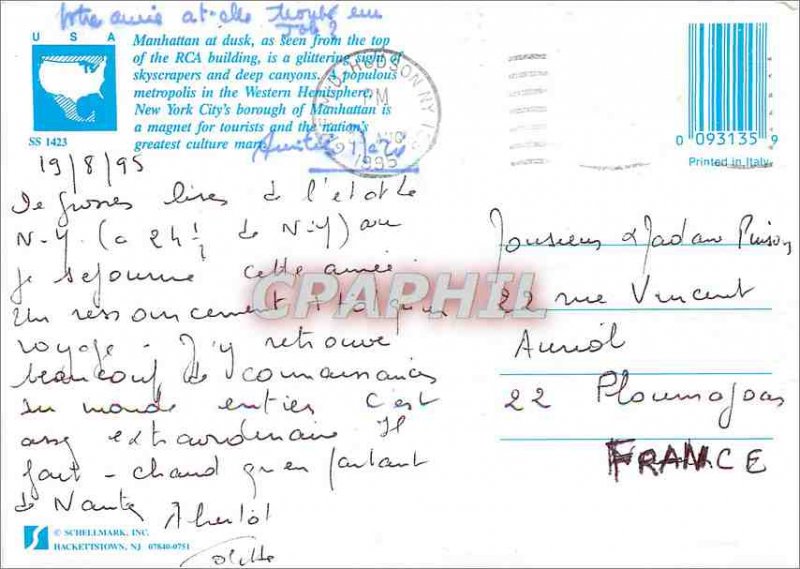 Votre amie at-elle trouvé un
Job ?
U S A
SS 1423
Manhattan at dusk, as seen from the top
of the RCA building, is a glittering sight of
skyscrapers and deep canyons. A populous
metropolis in the Western Hemisphere,
New York City's borough of Manhattan is
a magnet for tourists and the nation's
greatest culture mart.
HUDSON NY
PM
1995
0 093135 9
Printed in Italy
19/8/95
De grosses bises de l'état de
N-Y. (a 2h ½ de N-Y) où
je séjourne cette année.
Un ressourcement + qu'un
voyage - J'y retrouve
beaucoup de connaissances
du monde entier C'est
assez extraordinaire Il
fait - chaud qu'en partant
de Nantes A bientôt
Colette
Monsieur & Madame Pinson
22 rue Vincent
Auriol
22 Ploumagoar
FRANCE
CPAPHIL
© SCHELLMARK, INC.
HACKETTSTOWN, NJ 07840-0751